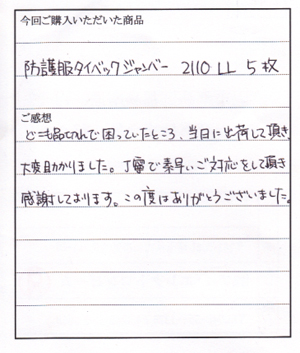 今回ご購入いただいた商品
防護服タイベックジャンパー 2110 LL 5枚
ご感想
どこも品切れで困っていたところ、当日に出荷して頂き
大変助かりました。丁寧で素早いご対応をして頂き
感謝しております。この度はありがとうございました。